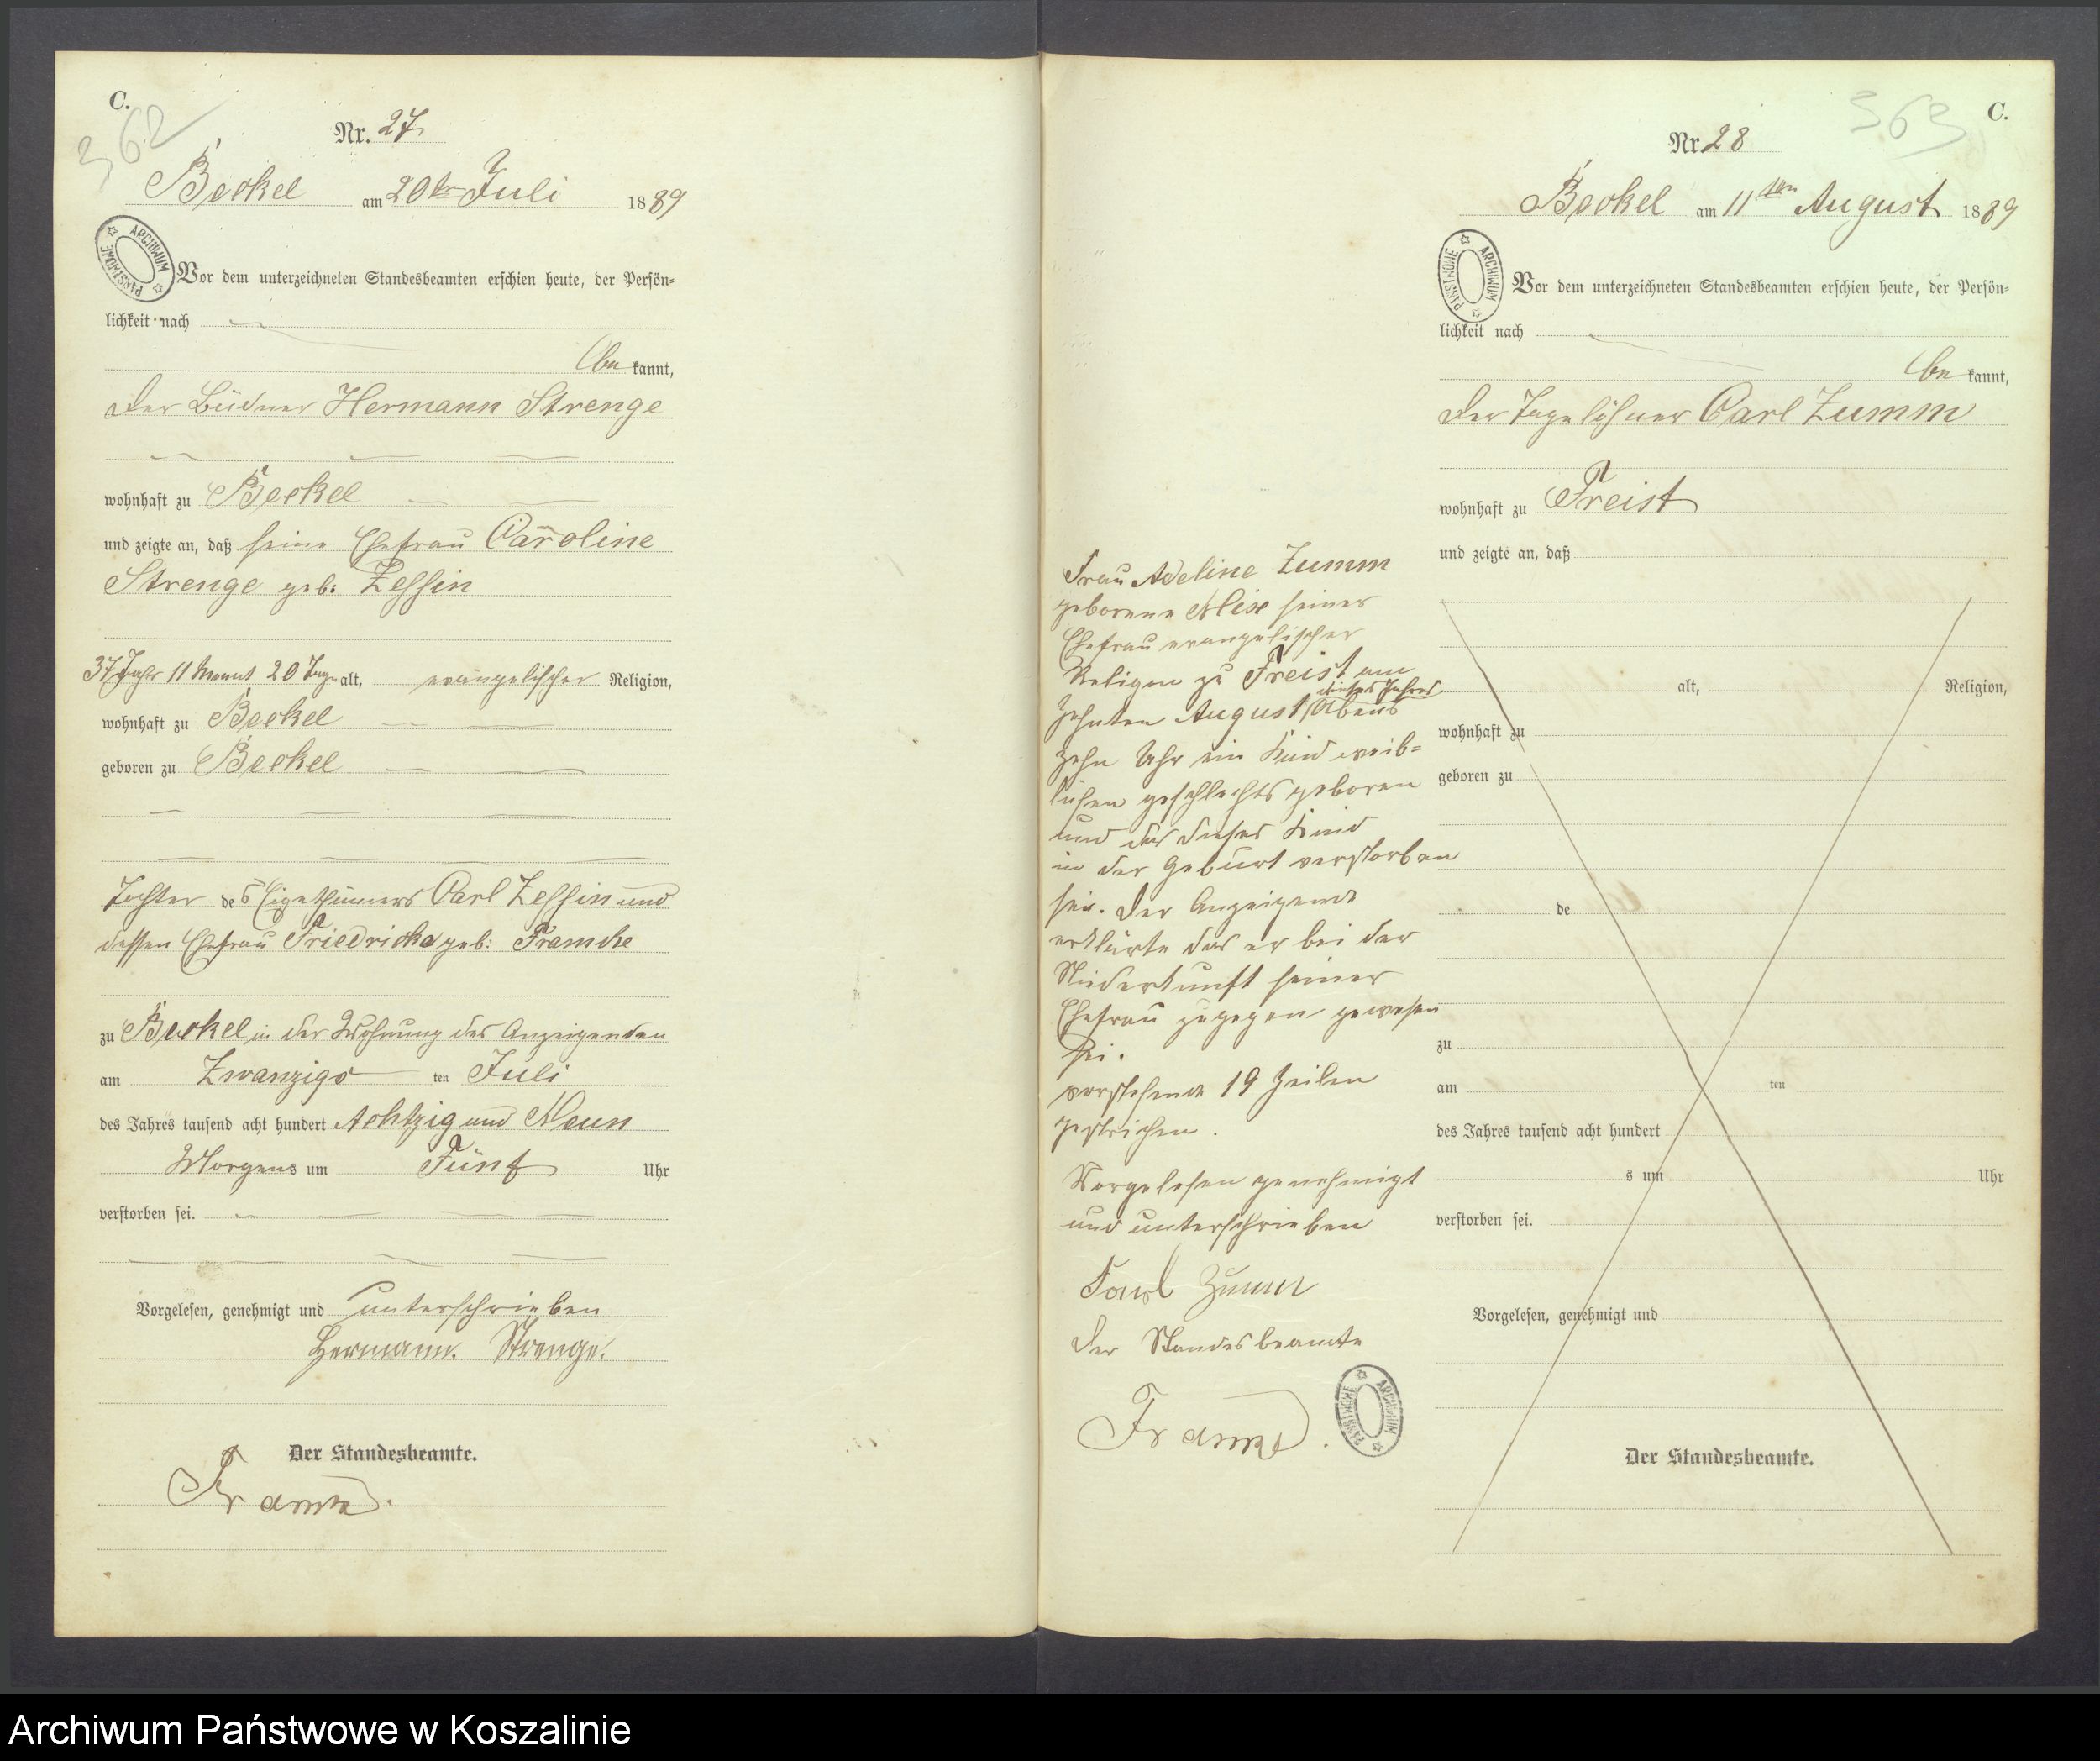 C.
362
Nr. 27
Beckel am 20ten Juli 1889
ARCHIWUM PAŃSTWOWE
Vor dem unterzeichneten Standesbeamten erschien heute, der Persön=
lichkeit nach
be kannt,
der Büdner Hermann Strenge
wohnhaft zu Beckel
und zeigte an, daß seine Ehefrau Caroline
Strenge geb: Zessin
37 Jahr 11 Monat 20 Tage alt, evangelischer Religion,
wohnhaft zu Beckel
geboren zu Beckel
Tochter des Eigenthümers Carl Zessin und
dessen Ehefrau Friedricke geb:
zu Beckel in der Wohnung des Anzeigenden
am Zwanzigs ten Juli
des Jahres tausend acht hundert Achtzig und Neun
Morgens um Fünf Uhr
verstorben sei.
Vorgelesen, genehmigt und unterschrieben
Hermann. Strenge.
Der Standesbeamte.
C.
363
Nr. 28
Beckel am 11ten August 1889
ARCHIWUM PAŃSTWOWE
Vor dem unterzeichneten Standesbeamten erschien heute, der Persön=
lichkeit nach
be kannt,
der Tagelöhner Carl Zumm
wohnhaft zu Freist
und zeigte an, daß
alt, Religion,
wohnhaft zu
geboren zu
de
zu
am ten
des Jahres tausend acht hundert
s um Uhr
verstorben sei.
Vorgelesen, genehmigt und
Der Standesbeamte.
Frau Adeline Zumm
geborene Alix seiner
Ehefrau evangelischer
Religion zu Freist am
zehnten August dieses Jahres Abens
zehn Uhr ein Kind weib=
lichen geschlechts geboren
und das dieses Kind
in der Geburt verstorben
sei. Der Anzeigende
erklärte das er bei der
Niederkunft seiner
Ehefrau zugegen gewesen
sei.
vorstehende 19 Zeilen
gestrichen.
Vorgelesen genehmigt
und unterschrieben
Carl Zumm
Der Standesbeamte
ARCHIWUM PAŃSTWOWE
Archiwum Państwowe w Koszalinie